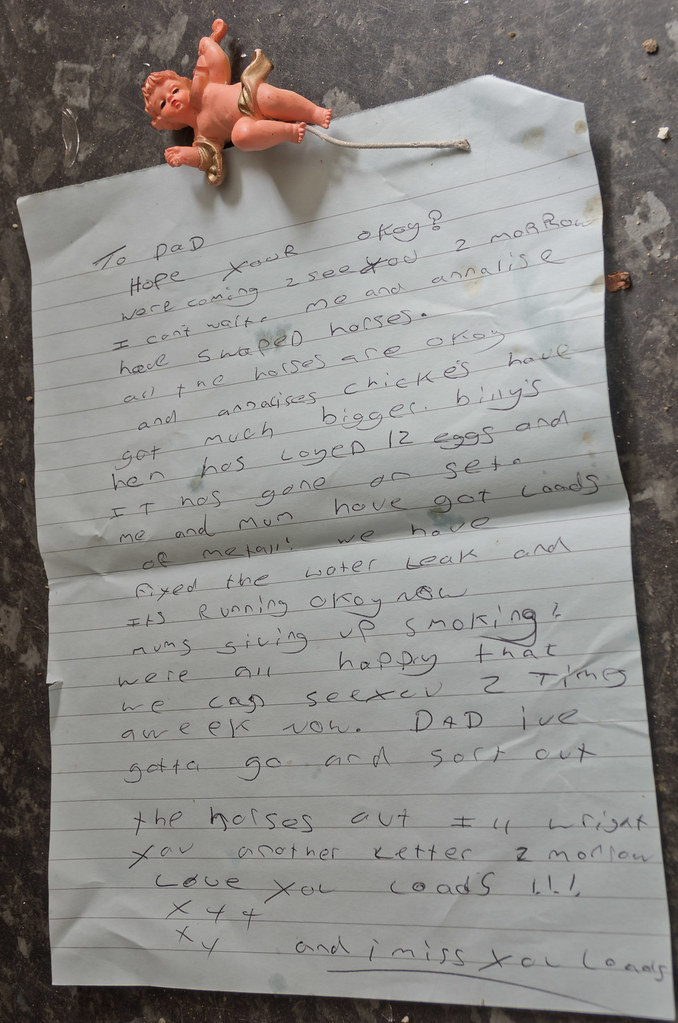 To DaD
Hope your okay?
were coming 2 see you 2 morrow
I cant waite me and annalise
have swaped horses.
all the horses are okay
and annalises chickes have
got much bigger. billy's
hen has layed 12 eggs and
IT has gone on set.
me and mum have got loads
of metal! we have
fixed the water leak and
its running okay now
mums giving up smoking?
were all happy that
we can see you 2 Times
aweek now. DAD ive
gotta go and sort out
the horses out I ll wright
you another letter 2 morrow
Love you loads !!!
x y y
x y and i miss you loads